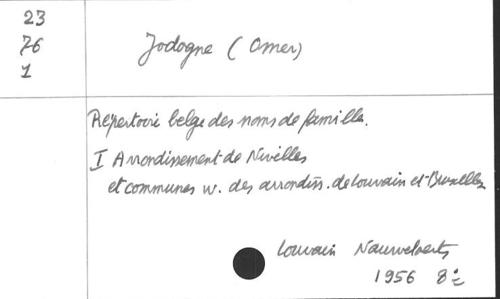 23
76
1
Jodogne (Omer)
Répertoire belge des noms de famille.
I Arrondissement de Nivelles
et communes w. des arrondiss. de Louvain et Bruxelles
Louvain Nauwelaerts
1956 8°